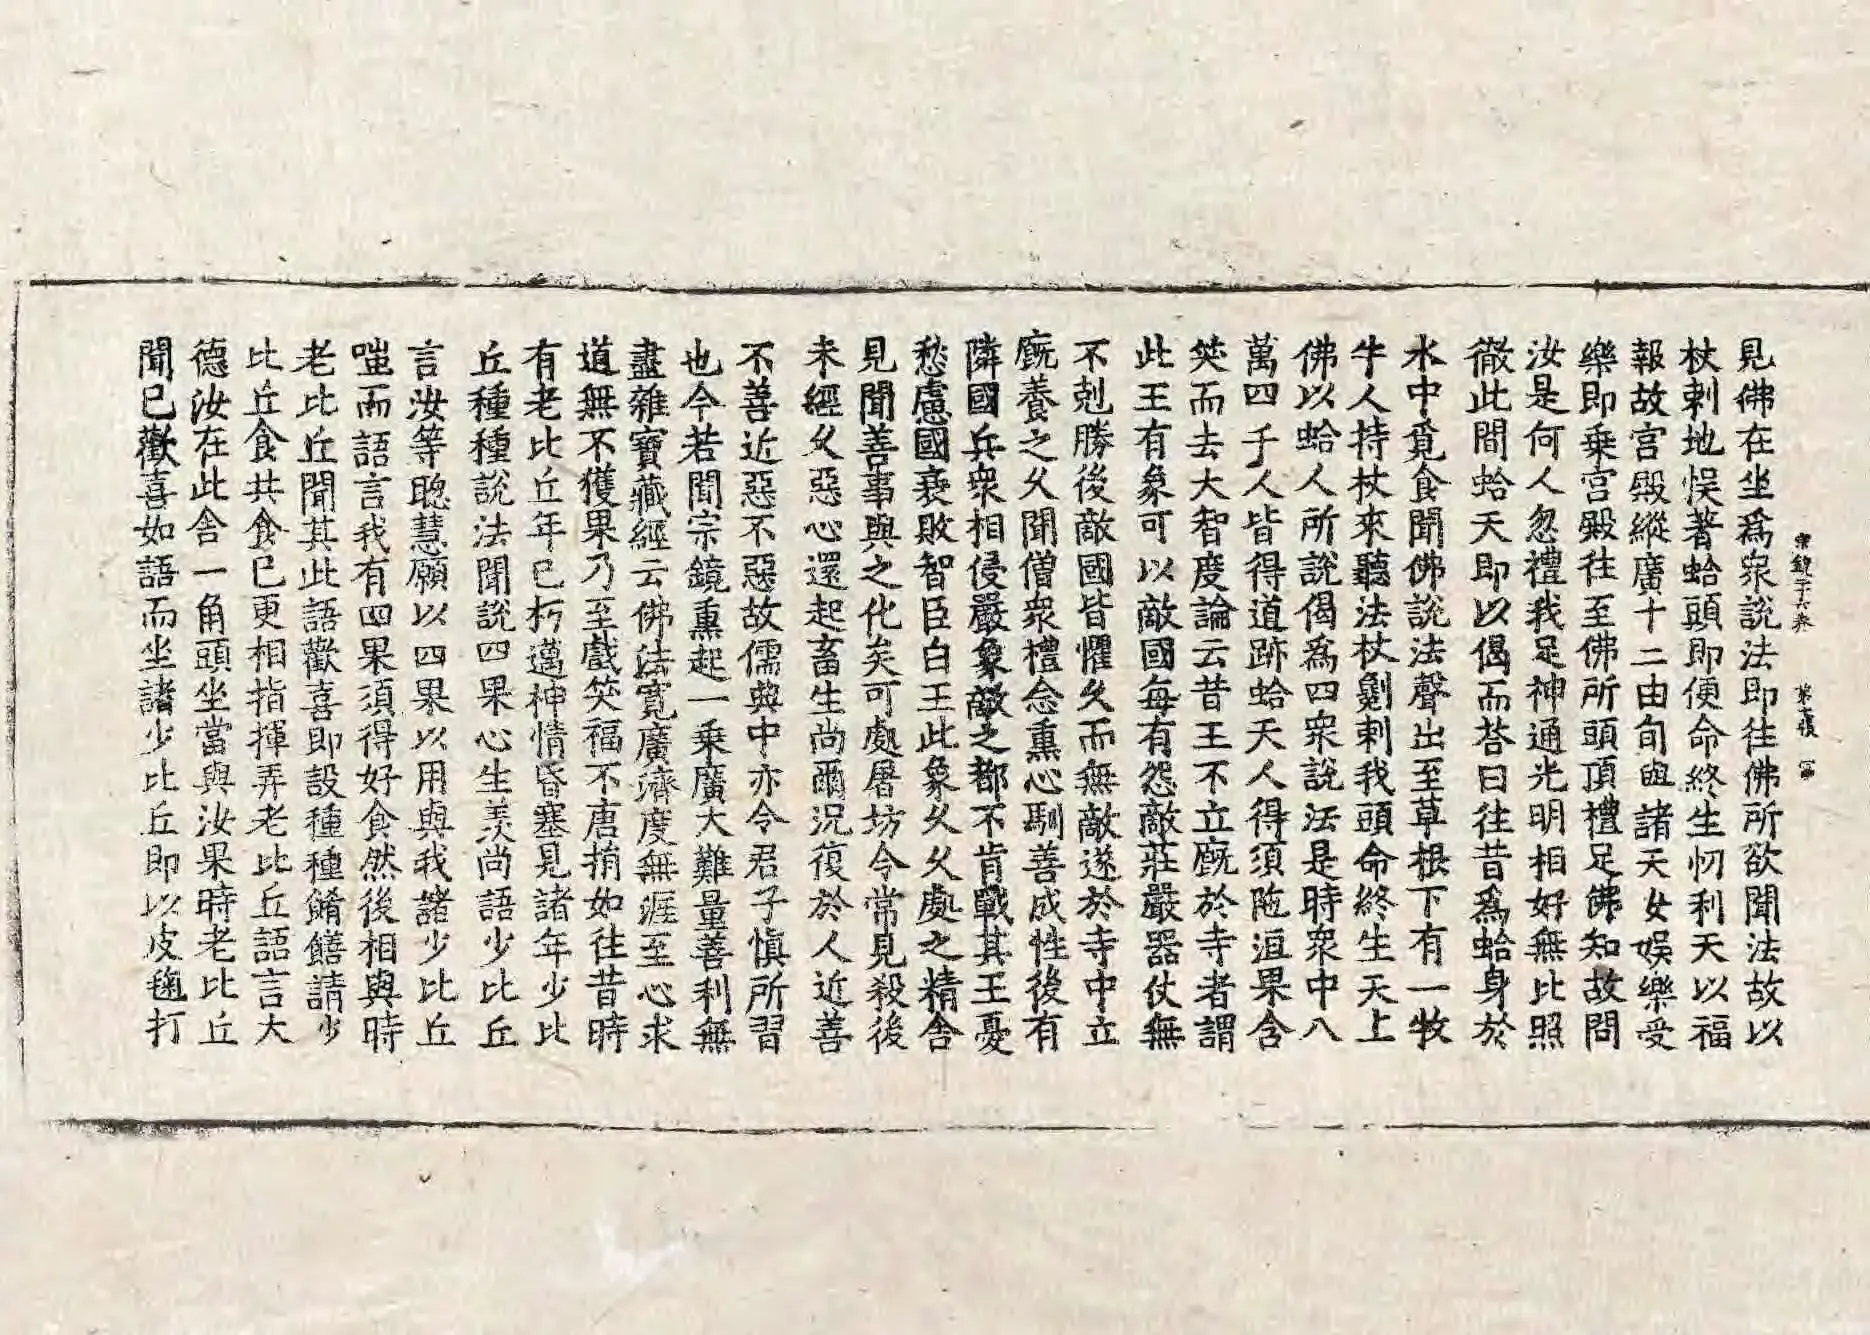 宗鏡 六卷 第 張
見佛在坐爲衆說法即往佛所欲聞法故以
杖刺地悞著蛤頭即便命終生忉利天以福
報故宫殿縱廣十二由旬與諸天女娛樂受
樂即乗宫殿往至佛所頭頂禮足佛知故問
汝是何人忽禮我足神通光明相好無比照
徹此間蛤天即以偈而荅曰往昔爲蛤身於
水中覓食聞佛說法聲出至草根下有一牧
牛人持杖來聽法杖劖刺我頭命終生天上
佛以蛤人所說偈爲四衆說法是時衆中八
萬四千人皆得道跡蛤天人得須陁洹果含
笑而去大智度論云昔王不立廐於寺者謂
此王有象可以敵國每有怨敵莊嚴器仗無
不剋勝後敵國皆懼久而無敵遂於寺中立
廐養之久聞僧衆禮念熏心馴善成性後有
隣國兵衆相侵嚴象敵之都不肯戰其王憂
愁慮國衰敗智臣白王此象久久處之精舍
見聞善事與之化矣可處屠坊令常見殺後
未經久惡心還起畜生尚爾況復於人近善
不善近惡不惡故儒典中亦令君子愼所習
也今若聞宗鏡熏起一乗廣大難量善利無
盡雜寶藏經云佛法寬廣濟度無涯至心求
道無不獲果乃至戲笑福不唐捐如往昔時
有老比丘年已朽邁神情昏塞見諸年少比
丘種種說法聞說四果心生羨尚語少比丘
言汝等聰慧願以四果以用與我諸少比丘
嗤而語言我有四果須得好食然後相與時
老比丘聞其此語歡喜即設種種餚饍請少
比丘食共食已更相指揮弄老比丘語言大
德汝在此舍一角頭坐當與汝果時老比丘
聞已歡喜如語而坐諸少比丘即以皮毱打